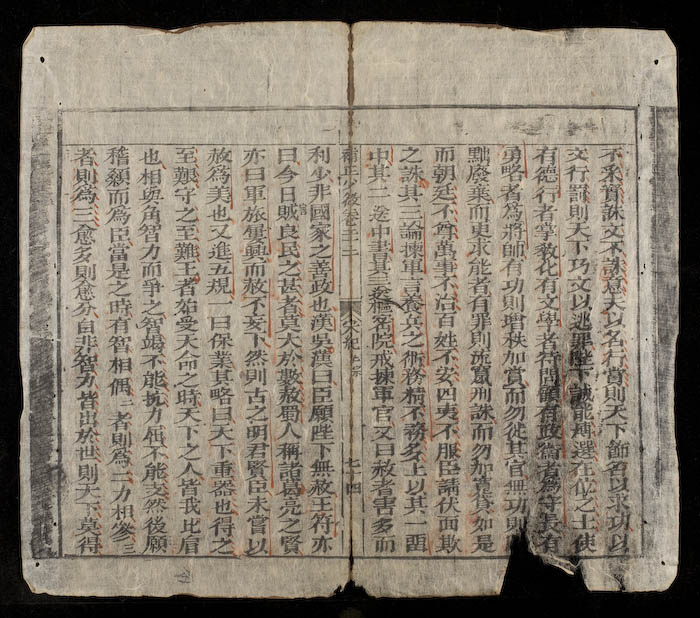 不求實誅文不誅意夫以名行賞則天下飾名以求功以
文行罰則天下巧文以逃罪陛下誠能搏選在位之士使
有德行者掌教化有文學者待問顧有政術者爲守長有
勇略者爲將帥有功則增秩加賞而勿徙其官無功則
黜廢棄而更求能者有罪則流竄刑誅而勿加寬貸如是
而朝廷不尊萬事不治百姓不安四夷不服臣請伏面欺
之誅其三論揀軍言養兵之術務精不務多上以其一留
中其二送中書其三送樞密院戒揀軍官又曰赦者害多而
少微卷三十二 宋紀 仁宗 七十四
利少非國家之善政也漢吳漢曰臣願陛下無赦王符亦
曰今日賊良民之甚者莫大於數赦蜀人稱諸葛亮之賢
亦曰軍旅屢興而赦不妄下然則古之明君賢臣未嘗以
赦爲美也又進五規一曰保業其略曰天下重器也得之
至艱守之至難王者始受天命之時天下之人皆我比肩
也相與角智力而爭之智竭不能抗力屈不能支然後願
稽顙而爲臣當是之時有智相偶者則爲二力相參三
者則爲三愈多則愈分自非智力皆出於世則天下莫得